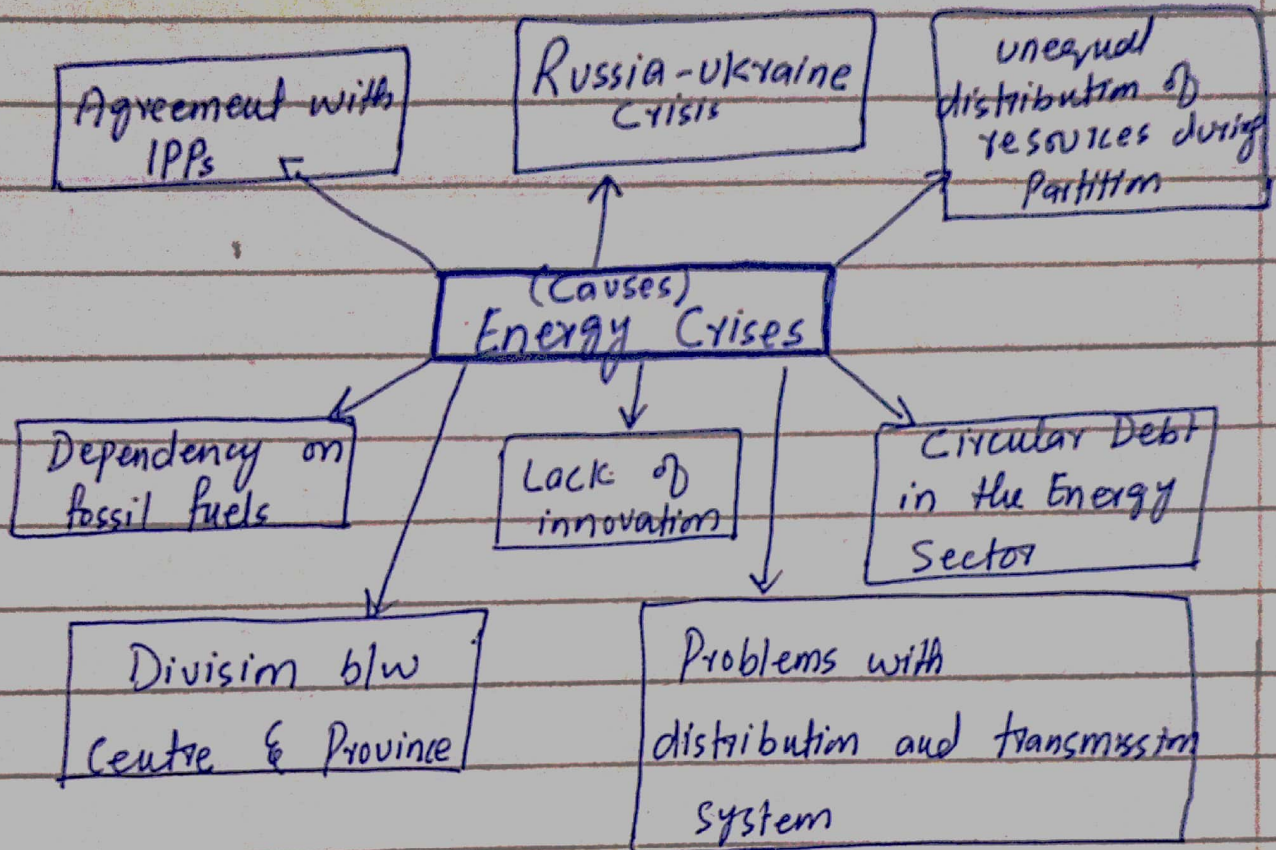 Agreement with
IPPs
Russia-Ukraine
Crisis
unequal
distribution of
resources during
Partition
(Causes)
Energy Crises
Dependency on
fossil fuels
Lack of
innovation
Circular Debt
in the Energy
Sector
Division b/w
Centre & Province
Problems with
distribution and transmission
system